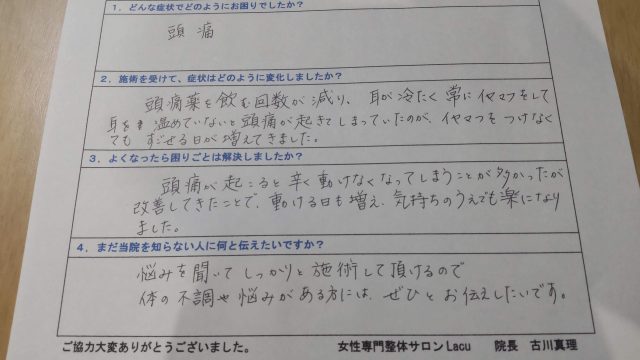 1．どんな症状でどのようにお困りでしたか？
頭痛
2．施術を受けて、症状はどのように変化しましたか？
頭痛薬を飲む回数が減り、耳が冷たく常にイヤマフをして
耳を温めていないと頭痛が起きてしまっていたのが、イヤマフをつけなく
ても すごせる日が増えてきました。
3．よくなったら困りごとは解決しましたか？
頭痛が起こると辛く動けなくなってしまうことが多かったが
改善してきたことで、動ける日も増え、気持ちのうえでも楽になり
ました。
4．まだ当院を知らない人に何と伝えたいですか？
悩みを聞いてしっかりと施術して頂けるので
体の不調や悩みがある方には、ぜひとお伝えしたいです。
ご協力大変ありがとうございました。 女性専門整体サロンLacu 院長 古川真理